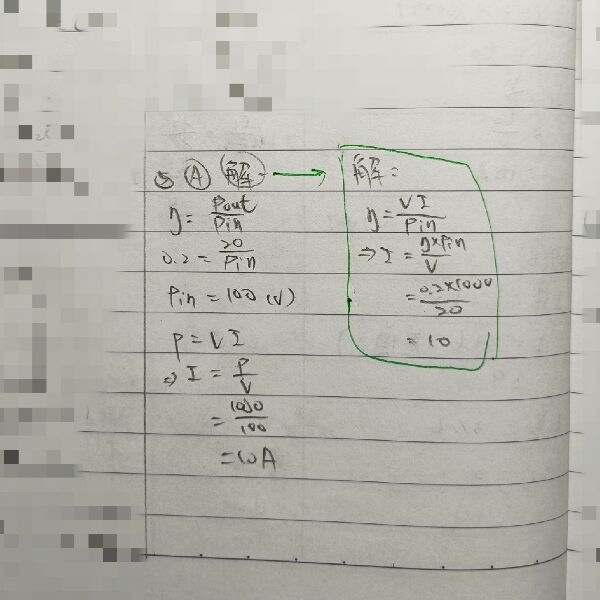 5 A 解
η = Pout/Pin
0.2 = 20/Pin
Pin = 100 (V)
P = V I
⇒ I = P/V
= 1000/100
= 10A
解:
η = V I/Pin
⇒ I = η×Pin/V
= 0.2×1000/20
= 10